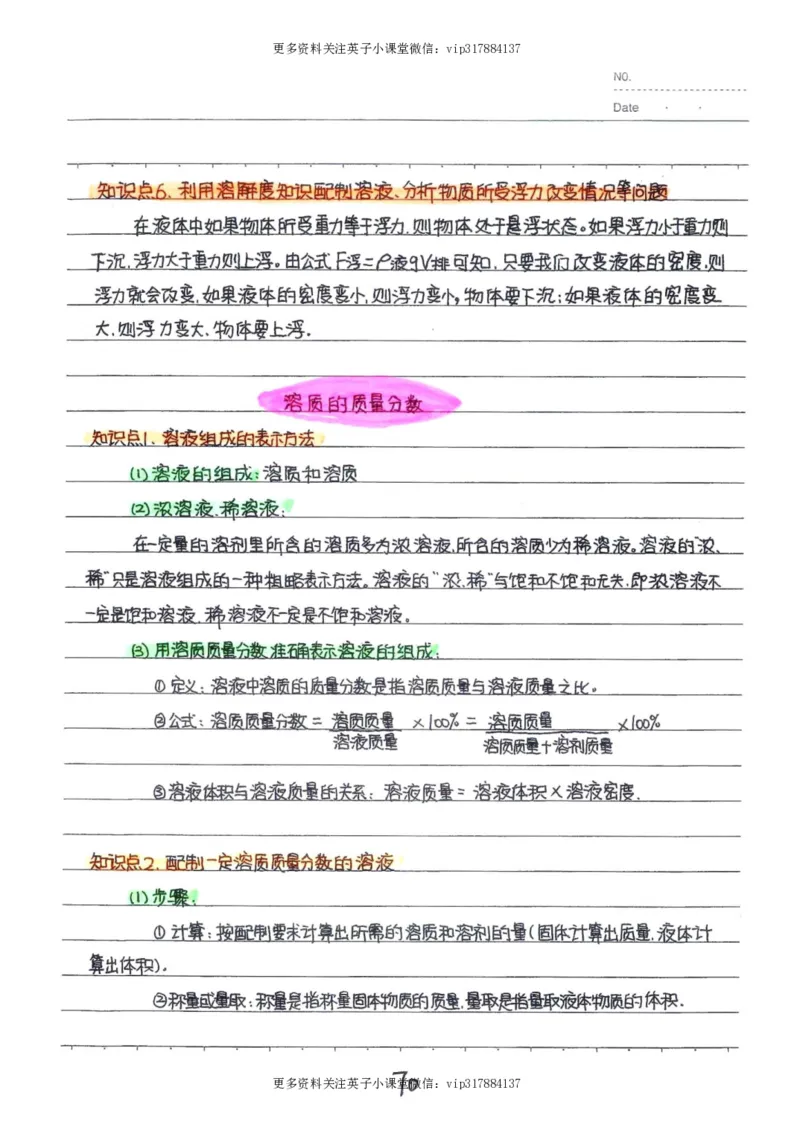 更多资料关注英子小课堂微信：vip317884137
NO.
Date · ·
知识点6、利用溶解度知识配制溶液、分析物质所受浮力改变情况等问题
在液体中如果物体所受重力等于浮力,则物体处于悬浮状态。如果浮力小于重力则
下沉,浮力大于重力则上浮。由公式F浮=ρ液gV排可知,只要我们改变液体的密度,则
浮力就会改变,如果液体的密度变小,则浮力变小。物体要下沉;如果液体的密度变
大,则浮力变大、物体要上浮.
溶质的质量分数
知识点1、溶液组成的表示方法
(1)溶液的组成:溶质和溶质
(2)浓溶液、稀溶液:
在一定量的溶剂里所含的溶质多为浓溶液,所含的溶质少为稀溶液。溶液的"浓、
稀"只是溶液组成的一种粗略表示方法。溶液的"浓、稀"与饱和不饱和无关,即浓溶液不
一定是饱和溶液、稀溶液不一定是不饱和溶液。
(3)用溶质质量分数准确表示溶液的组成:
①定义:溶液中溶质的质量分数是指溶质质量与溶液质量之比。
②公式:溶质质量分数= 溶质质量 ×100% = 溶质质量 ×100%
溶液质量 溶质质量+溶剂质量
③溶液体积与溶液质量的关系:溶液质量=溶液体积×溶液密度.
知识点2、配制一定溶质质量分数的溶液
(1)步骤:
①计算:按配制要求计算出所需的溶质和溶剂的量(固体计算出质量,液体计
算出体积).
②称量或量取:称量是指称量固体物质的质量,量取是指量取液体物质的体积.
70
更多资料关注英子小课堂微信：vip317884137